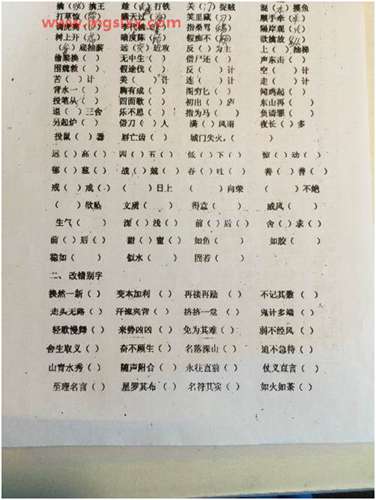 擒( )擒王 雌( )打铁 关( )捉贼 混( )摸鱼
打草惊( ) 瞒天过( ) 笑里藏( ) 顺手牵( )
调虎离( ) 李代桃( ) 指桑骂( ) 隔岸观( )
树上开( ) 暗度陈( ) 假痴不( ) 欲擒故( )
( )底抽薪 远( )近攻 反( )为主 上( )抽梯
偷梁换( ) 无中生( ) 借尸还( ) 声东击( )
围魏救( ) 假途伐( ) 反( )计 空( )计
苦( )计 美( )计 连( )计 走( )计
背水一( ) 胸有成( ) 图穷匕( ) 闻鸡起( )
投笔从( ) 四面楚( ) 初出( )庐 东山再( )
退( )三舍 乐不思( ) 指为马( ) 负荆请( )
另起炉( ) 借刀( )人 满( )风雨 夜长( )多
投鼠( )器 唇亡齿( ) 城门失火,( )
远( )高( ) 四( )五( ) 低( )下( ) 惊( )动( )
郁( )葱( ) 战( )兢( ) 吞( )吐( ) 善( )善( )
戒( )戒( ) ( )日上 ( )向荣 ( )不绝
( )欣贴 文质( ) 得意( ) 威风( )
生气( ) 面( )浅( ) 前( )后( ) 舍( )求( )
前( )后( ) 甜( )蜜( ) 如鱼( ) 如胶( )
稳如( ) 似水( ) 固若( )
二、改错别字
换然一新( ) 变本加利( ) 再接再励( ) 不记其数( )
走头无路( ) 汗流夹背( ) 挤挤一堂( ) 鬼计多端( )
轻歌慢舞( ) 来势凶凶( ) 免为其难( ) 弱不经风( )
舍生取义( ) 奋不顾生( ) 名落深山( ) 迫不急待( )
山青水秀( ) 随声附合( ) 永往直前( ) 仗义直言( )
至理名言( ) 星罗其布( ) 名符其实( ) 如火如荼( )